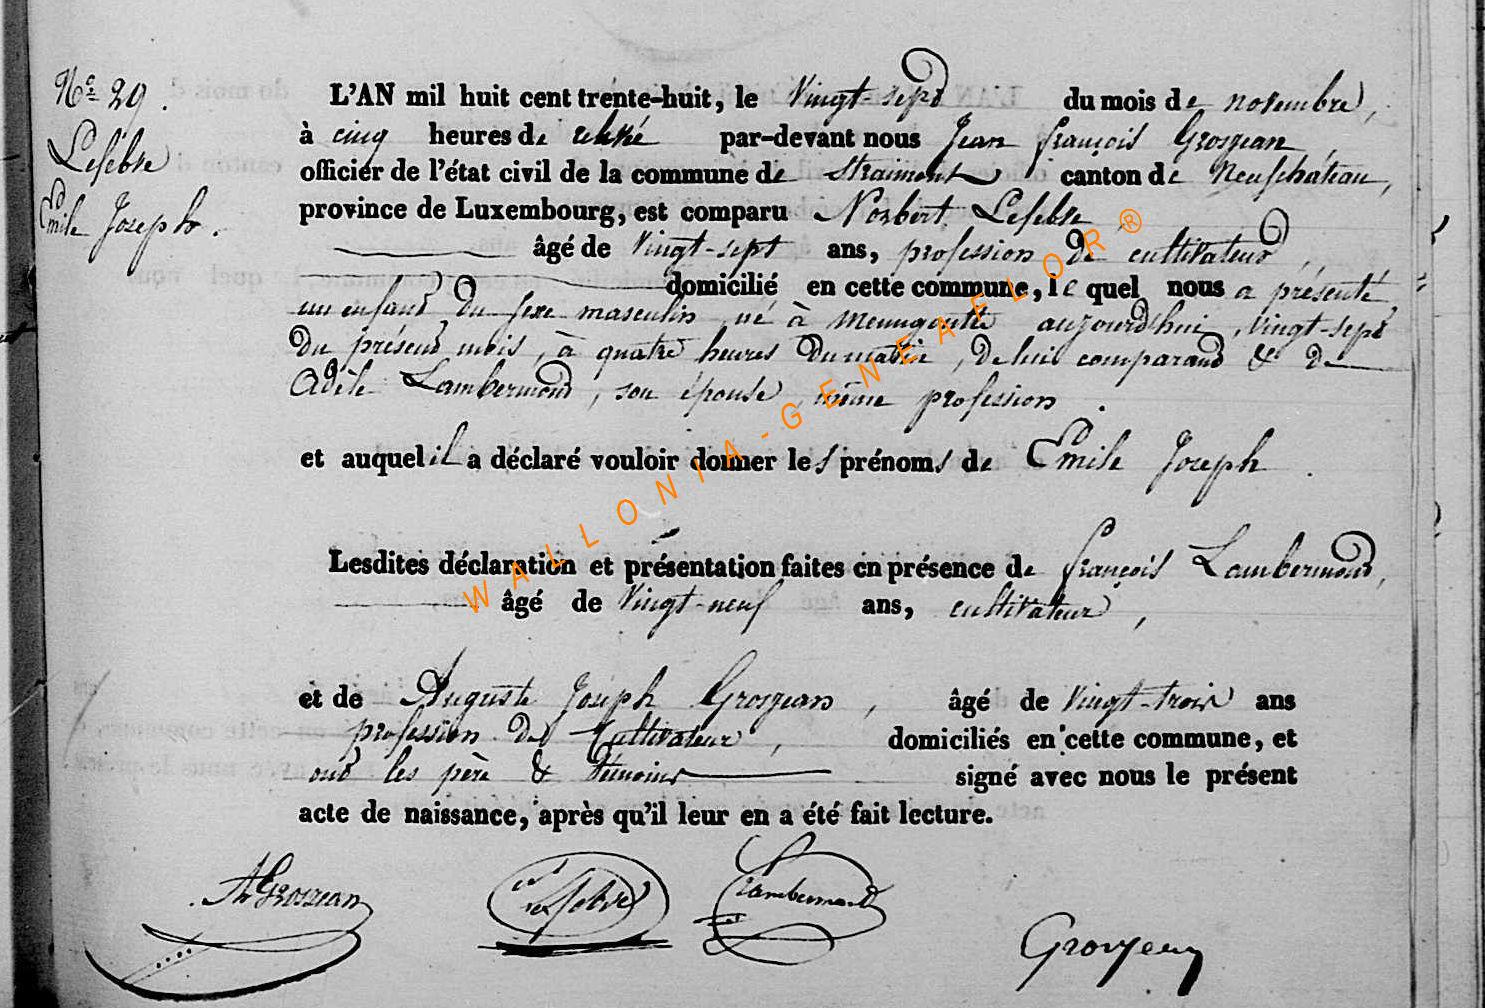 No 29.
Lefebre
Emile Joseph.
L'AN mil huit cent trente-huit, le Vingt-sept du mois de novembre,
à cinq heures de relevé par-devant nous Jean François Grosjean,
officier de l'état civil de la commune de Straimont canton de Neufchâteau,
province de Luxembourg, est comparu Norbert Lefebre
âgé de Vingt-sept ans, profession de cultivateur,
domicilié en cette commune, lequel nous a présenté
un enfant du sexe masculin, né à Menugoutte aujourd'hui, vingt-sept
du présent mois, à quatre heures du matin, de lui comparant & de
Adèle Lambermont, son épouse, même profession.
et auquel il a déclaré vouloir donner les prénoms de Emile Joseph.
Lesdites déclaration et présentation faites en présence de François Lambermont,
âgé de Vingt-neuf ans, cultivateur,
et de Auguste Joseph Grosjean, âgé de Vingt-trois ans
profession de Cultivateur, domiciliés en cette commune, et
ont les père & témoins signé avec nous le présent
acte de naissance, après qu'il leur en a été fait lecture.
Grosjean Lefebre Lambermont
Grosjean
WALLONIA-GENEAFLOR®